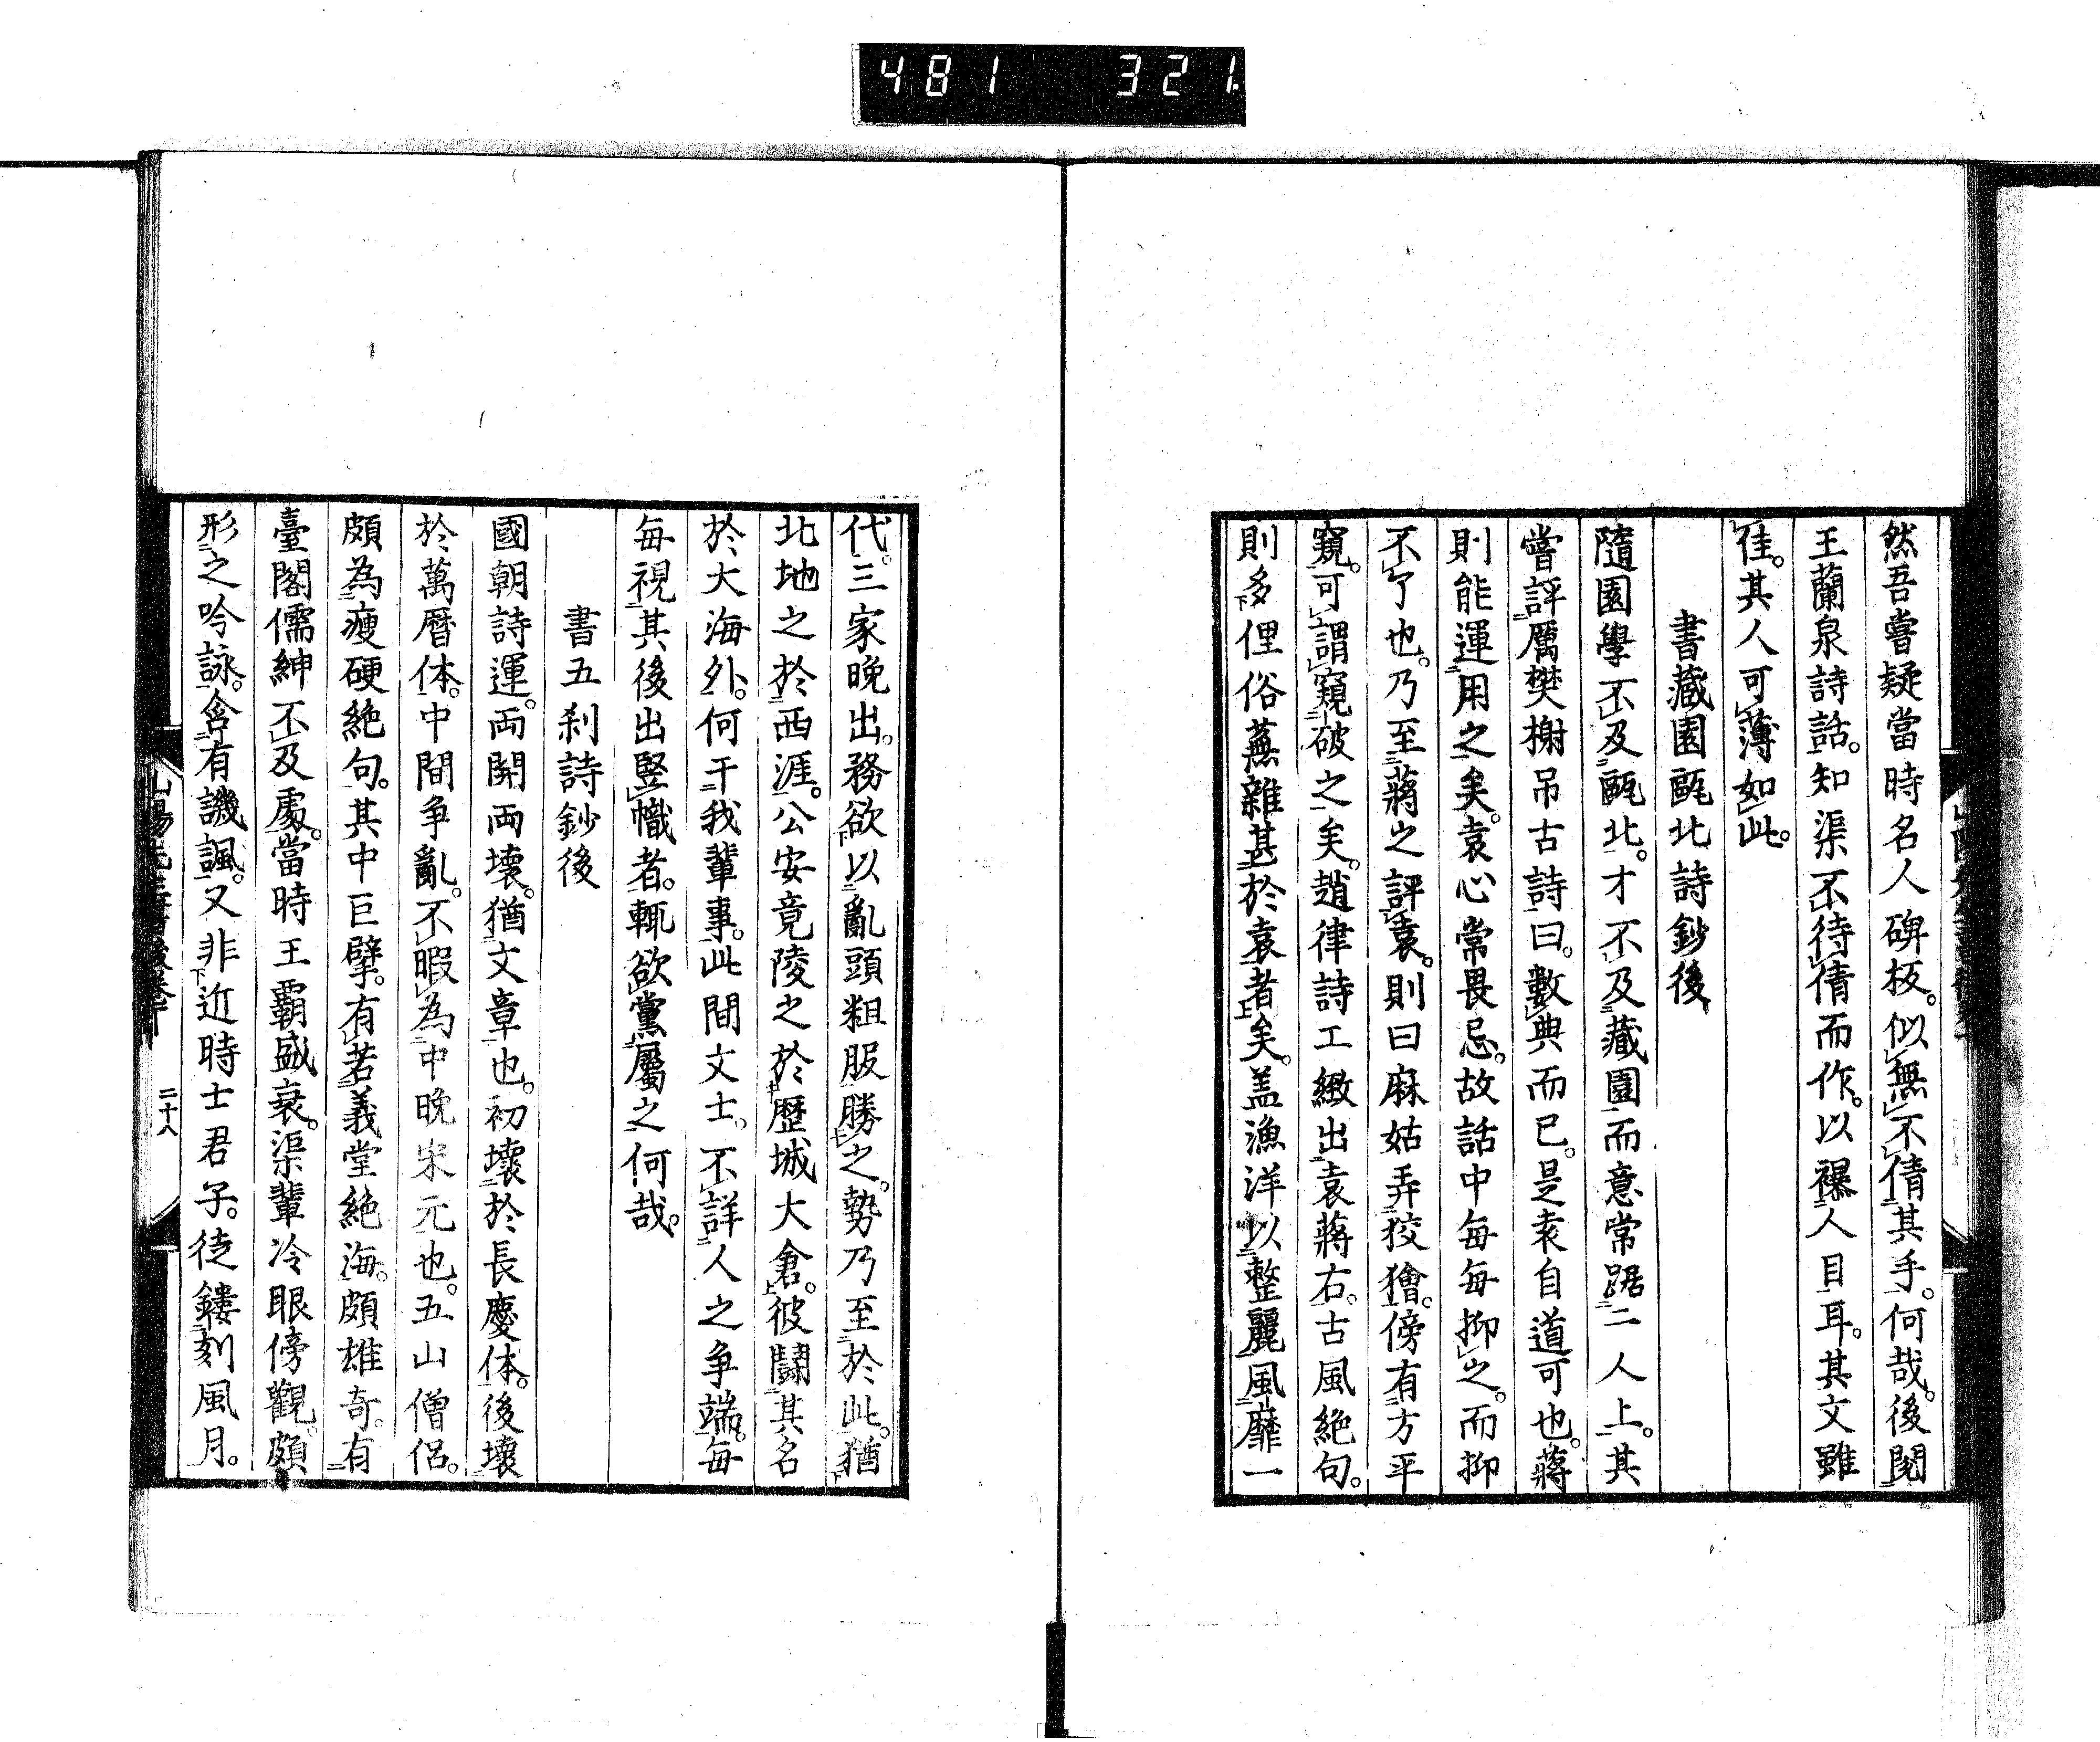 481 321
然吾嘗疑當時名人碑板。似無不倩其手。何哉。後閱
王蘭泉詩話。知渠不待倩而作。以襮人目耳。其文雖
佳。其人可薄如此。
書藏園甌北詩鈔後
隨園學不及甌北。才不及藏園而意常踞二人上。其
嘗評厲樊榭吊古詩曰。數典而已。是袁自道可也。蔣
則能運用之矣。袁心常畏忌。故話中每每抑之。而抑
不了也。乃至蔣之評袁。則曰麻姑弄狡獪。傍有方平
窺。可謂窺破之矣。趙律詩工緻出袁蔣右。古風絕句。
則多俚俗蕪雜甚於袁者矣。盖漁洋以整麗風靡一
代。三家晚出。務欲以亂頭粗服勝之。勢乃至於此。猶
北地之於西涯。公安竟陵之於歷城大倉。彼鬪其名
於大海外。何干我輩事。此間文士。不詳人之争端。每
每視其後出豎幟者。輒欲黨屬之何哉。
書五刹詩鈔後
國朝詩運。両開両壞。猶文章也。初壞於長慶体。後壞
於萬曆体。中間争亂。不暇為中晚宋元也。五山僧侶。
頗為瘦硬絶句。其中巨擘。有若義堂絶海。頗雄奇。有
臺閣儒紳不及處。當時王覇盛衰。渠輩冷眼傍觀。頗
形之吟詠。含有譏諷。又非近時士君子。徒鏤刻風月。
山陽先生書後卷下 二十八